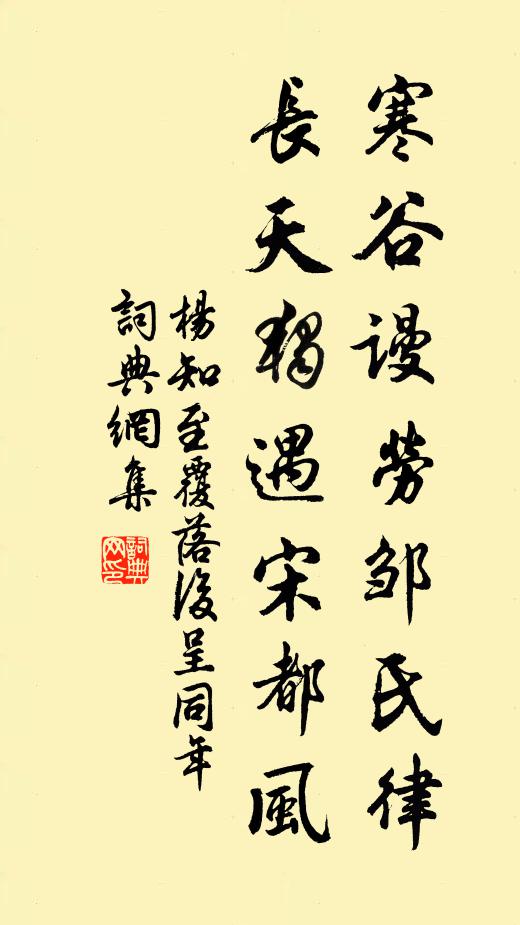 寒谷謾勞邹氏律
長天獨遇宋都風
楊知至覆落後呈同年
詞典網集
詞典
网印